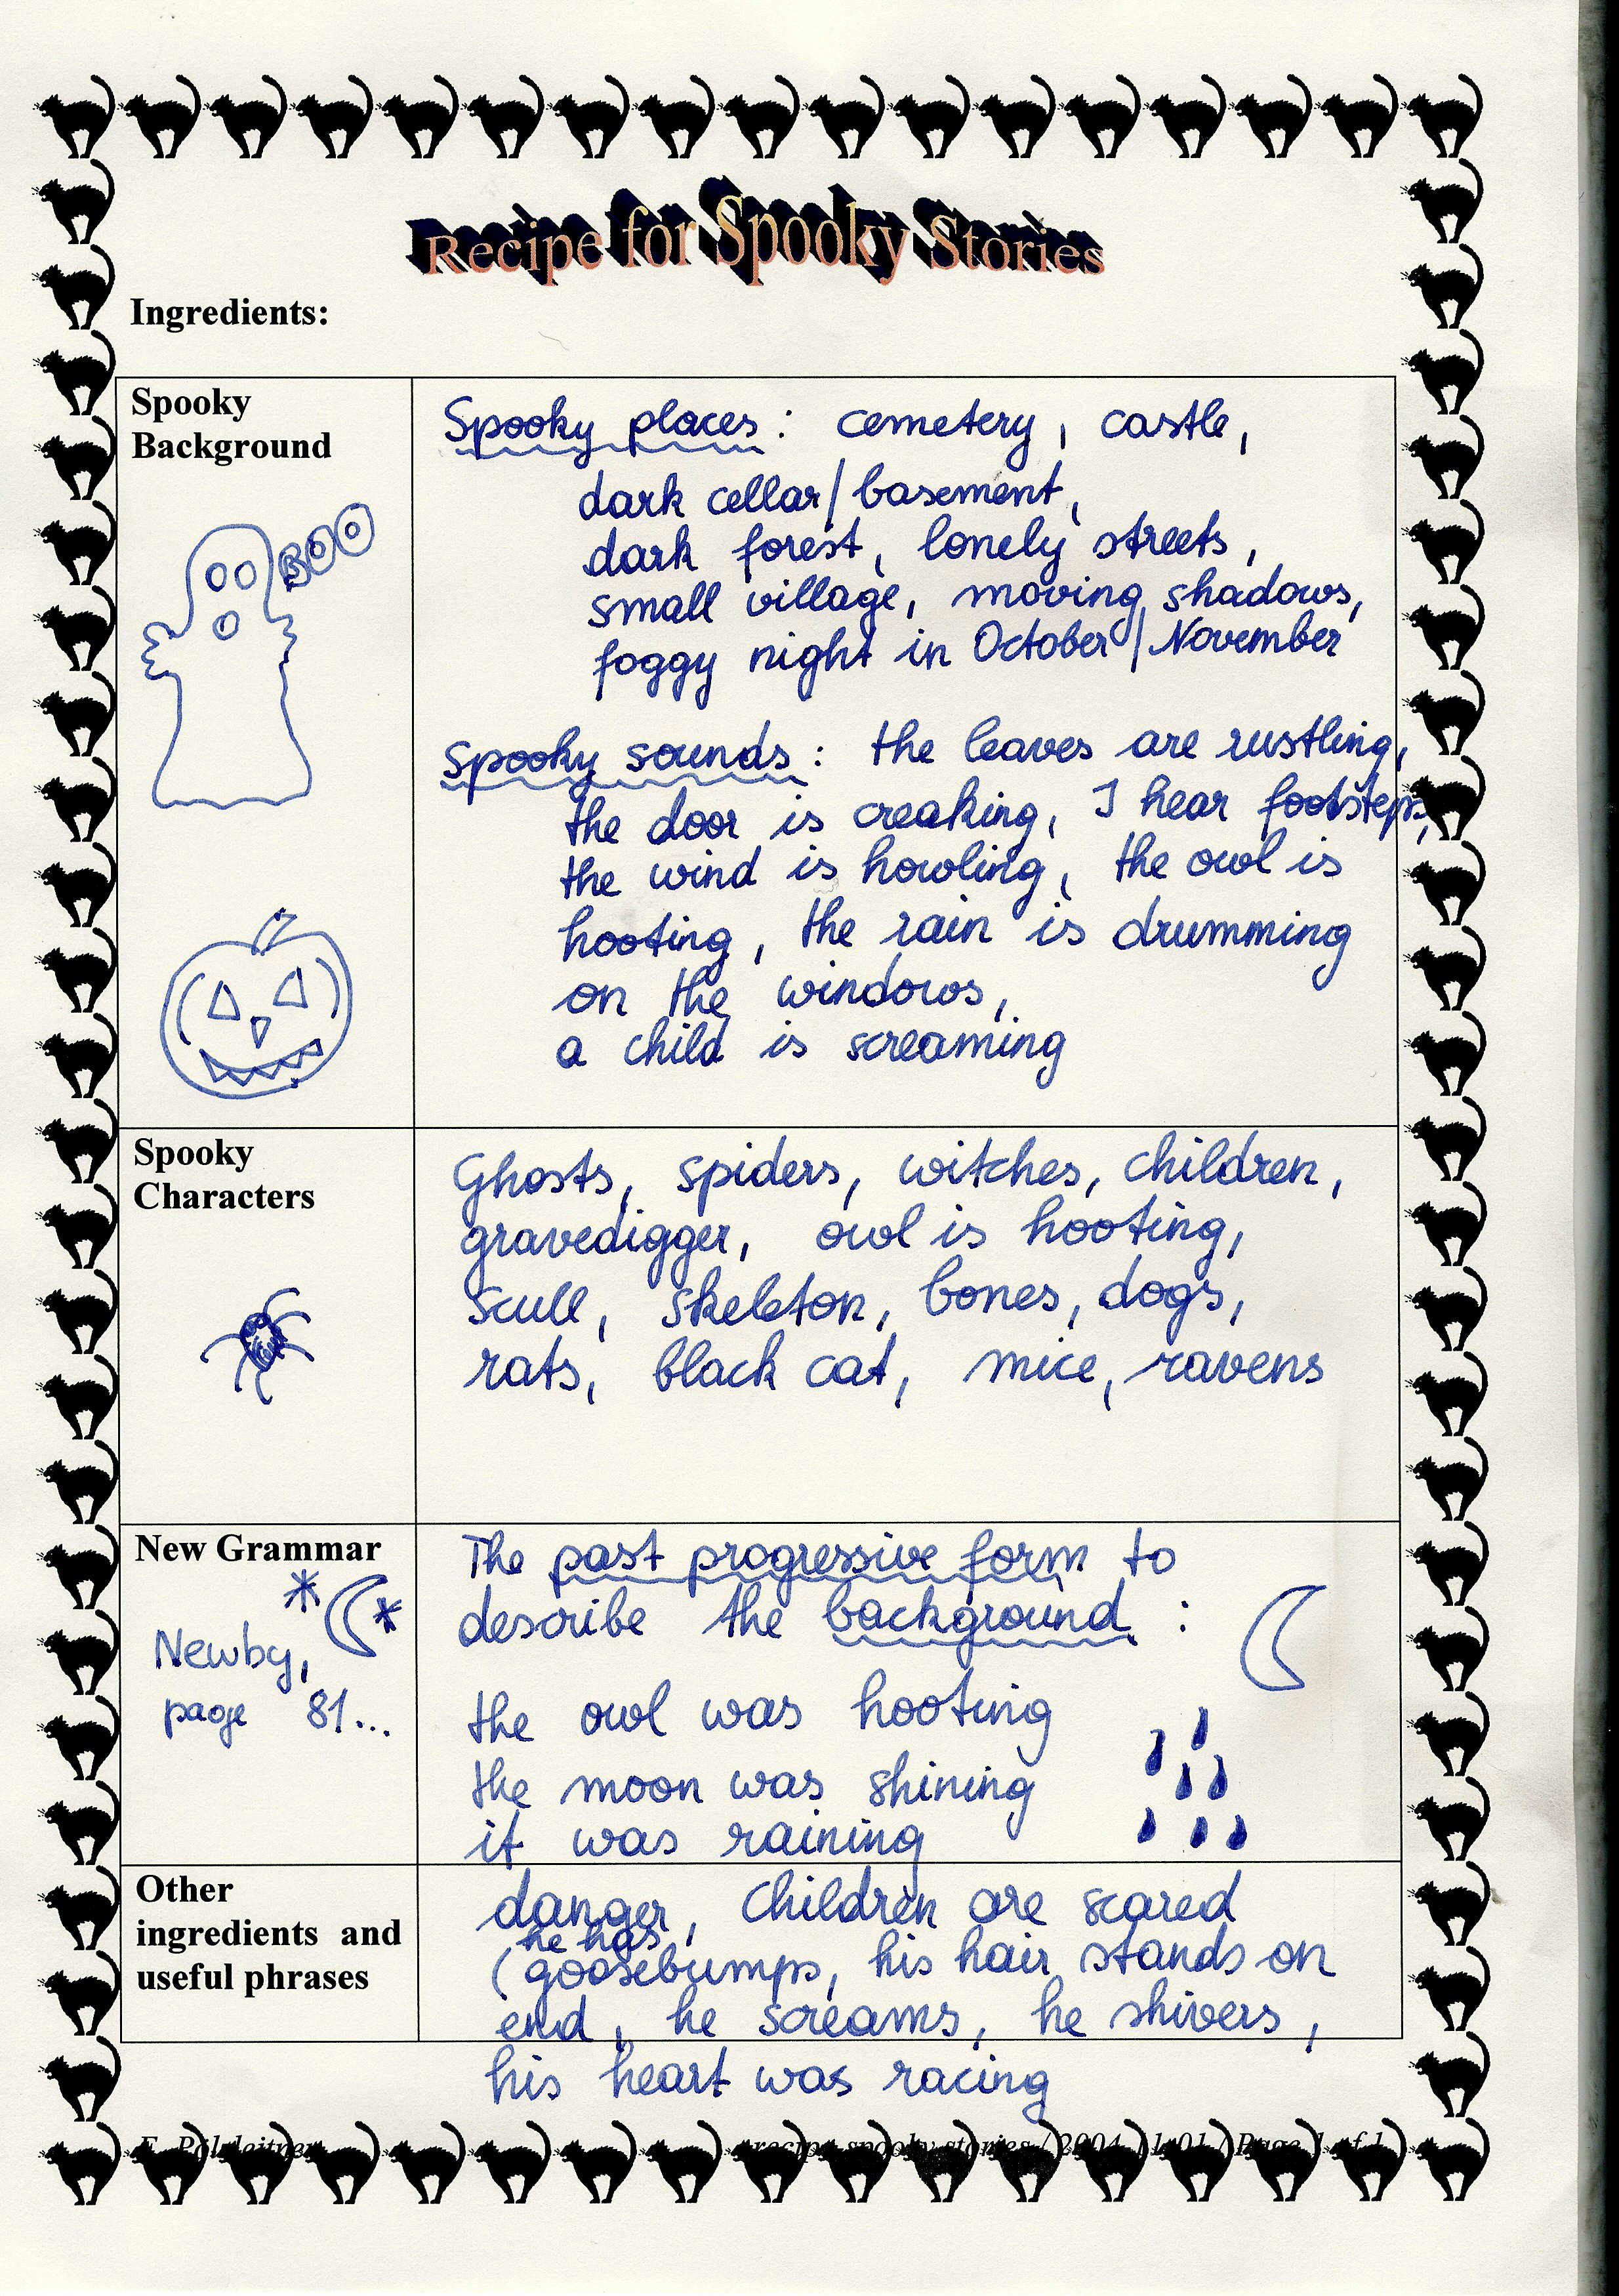 Recipe for Spooky Stories
Ingredients:
Spooky
Background
BOO
Spooky places: cemetery, castle,
dark cellar/basement,
dark forest, lonely streets,
small village, moving shadows,
foggy night in October/November
Spooky sounds: the leaves are rustling,
the door is creaking, I hear footsteps,
the wind is howling, the owl is
hooting, the rain is drumming
on the windows,
a child is screaming
Spooky
Characters
Ghosts, spiders, witches, children,
gravedigger, owl is hooting,
scull, skeleton, bones, dogs,
rats, black cat, mice, ravens
New Grammar
Newby,
page 81...
The past progressive form to
describe the background:
the owl was hooting
the moon was shining
it was raining
Other
ingredients and
useful phrases
danger, children are scared
he has
(goosebumps, his hair stands on
end, he screams, he shivers,
his heart was racing
E. Pölzleitner
recipe spooky stories / 2004 / Page 1 of 1